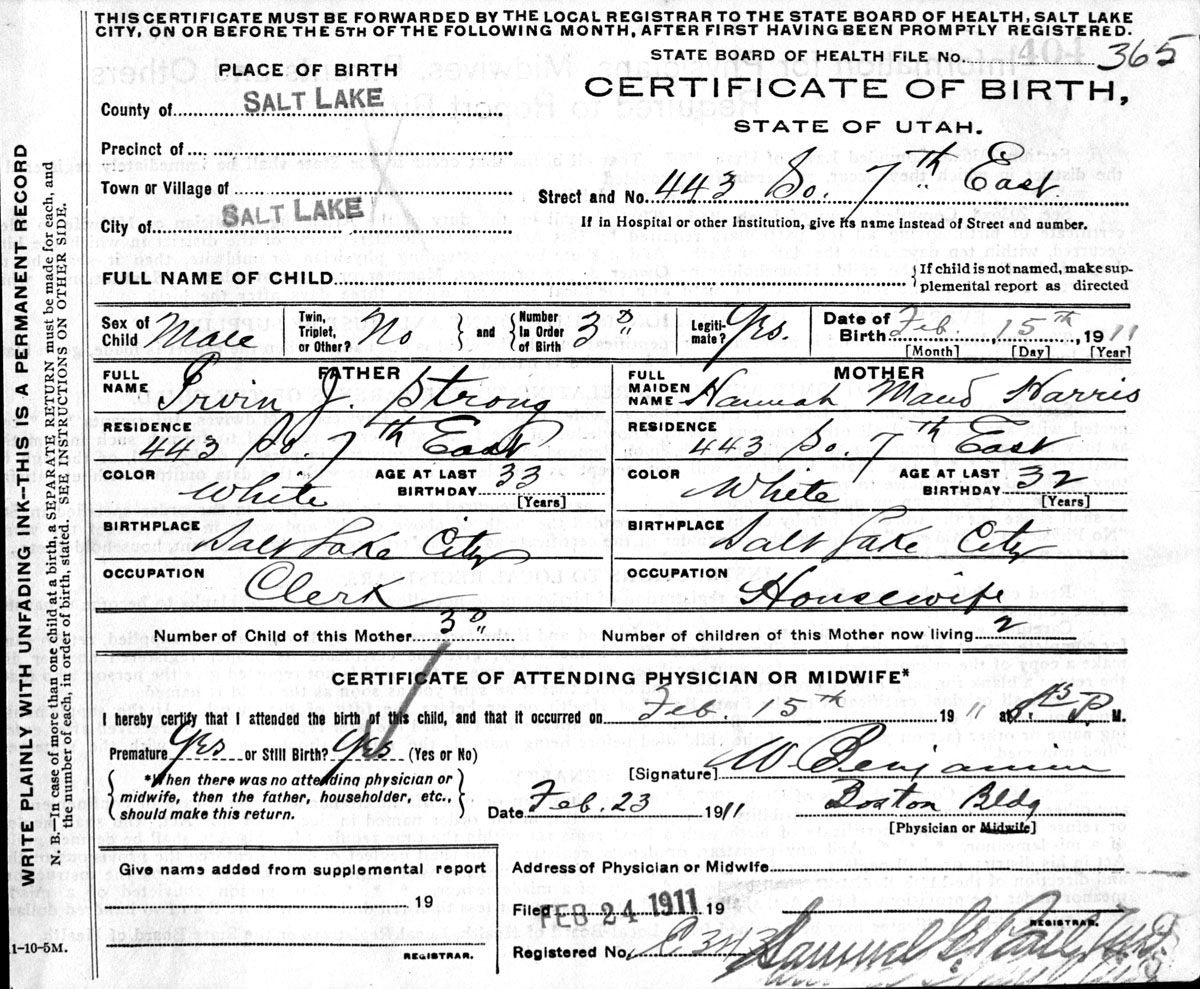 THIS CERTIFICATE MUST BE FORWARDED BY THE LOCAL REGISTRAR TO THE STATE BOARD OF HEALTH, SALT LAKE
CITY, ON OR BEFORE THE 5TH OF THE FOLLOWING MONTH, AFTER FIRST HAVING BEEN PROMPTLY REGISTERED.
STATE BOARD OF HEALTH FILE No. 404 365
PLACE OF BIRTH
CERTIFICATE OF BIRTH,
STATE OF UTAH.
County of SALT LAKE
Precinct of
Town or Village of
Street and No. 443 So. 7th East
City of SALT LAKE
If in Hospital or other Institution, give its name instead of Street and number.
FULL NAME OF CHILD
{If child is not named, make sup-
plemental report as directed
Sex of Child Male
Twin, Triplet, or Other? No { and } Number In Order of Birth 3D
Legiti- mate? Yes
Date of Birth Feb 15th 1911
[Month] [Day] [Year]
FATHER
FULL NAME Irvin J. Strong
RESIDENCE 443 So 7th East
COLOR White
AGE AT LAST BIRTHDAY 33
[Years]
BIRTHPLACE Salt Lake City
OCCUPATION Clerk
MOTHER
FULL MAIDEN NAME Hannah Maud Harris
RESIDENCE 443 So. 7th East
COLOR White
AGE AT LAST BIRTHDAY 32
[Years]
BIRTHPLACE Salt Lake City
OCCUPATION Housewife
Number of Child of this Mother 3D
Number of children of this Mother now living 2
CERTIFICATE OF ATTENDING PHYSICIAN OR MIDWIFE*
I hereby certify that I attended the birth of this child, and that it occurred on Feb. 15th 1911 at P. M.
Premature Yes or Still Birth? Yes (Yes or No)
{ *When there was no attending physician or
midwife, then the father, householder, etc.,
should make this return. }
[Signature] W. Benjamin
Date Feb. 23 1911 Boston Bldg
[Physician or Midwife]
Give name added from supplemental report
19
REGISTRAR.
Address of Physician or Midwife
Filed FEB 24 1911 19
REGISTRAR.
Registered No.
1-10-5M.
WRITE PLAINLY WITH UNFADING INK--THIS IS A PERMANENT RECORD
N. B.—In case of more than one child at a birth, a SEPARATE RETURN must be made for each, and
the number of each, in order of birth, stated. SEE INSTRUCTIONS ON OTHER SIDE.